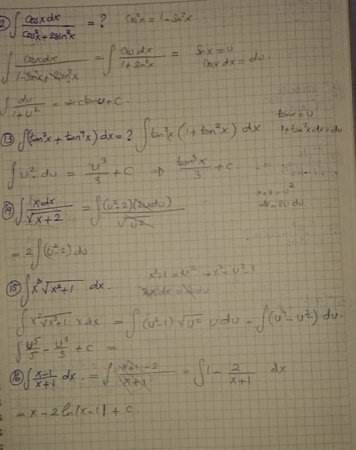 ∫ cosx dx / cos²x + 2sin²x = ? cos²x = 1 - sin²x
∫ cosx dx / 1 - sin²x + 2sin²x = ∫ cosx dx / 1 + sin²x = sinx = u
cosx dx = du
∫ du / 1 + u² = arctanu + C
13 ∫ (tan²x + tan⁴x) dx = ? ∫ tan²x (1 + tan²x) dx tanx = u
1 + tan²x dx = du
∫ u² du = u³/3 + C ⇒ tan³x/3 + C
∫ x dx / √x+2 = ∫ (u²-2)(2u du) / √u²
dx = 2u du
= 2 ∫ (u²-2) du
15 ∫ x³ √x²+1 dx x²+1 = u² x² = u²-1
∫ x² √x²+1 x dx = ∫ (u²-1) √u² u du = ∫ (u⁴ - u²) du
u⁵/5 - u³/3 + C =
16 ∫ x-1 / x+1 dx = ∫ x+1-2 / x+1 = ∫ 1 - 2/x+1 dx
= x - 2 ln|x-1| + C